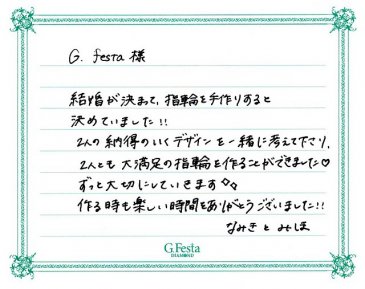 G. festa 様
結婚が決まって、指輪を手作りすると
決めていました!!
2人の納得のいくデザインを一緒に考えて下さり、
2人とも大満足の指輪を作ることができました♡
ずっと大切にしていきます◇◇
作る時も楽しい時間をありがとうございました!!
なみきとみほ
G.Festa
DIAMOND